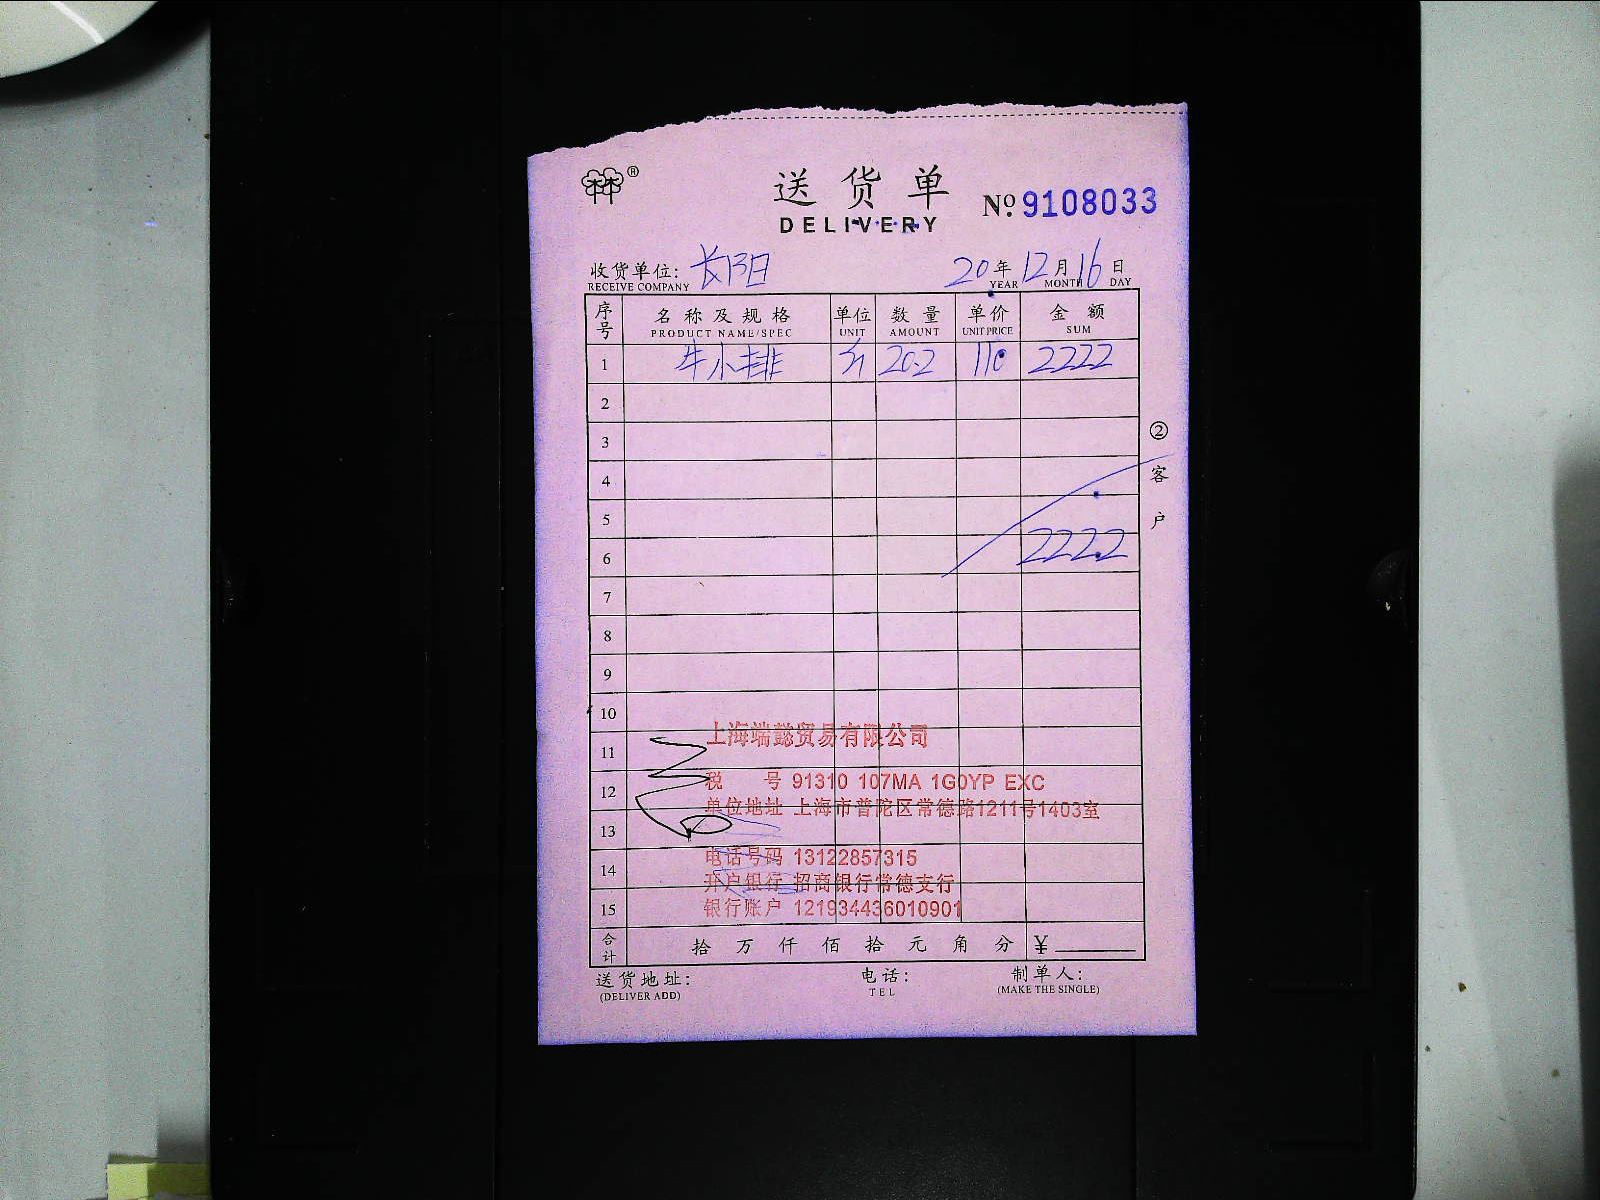 ®
送货单
DELIVERY
No. 9108033
收货单位: 长阳
RECEIVE COMPANY
20年12月16日
YEAR MONTH DAY
序号 名称及规格 单位 数量 单价 金额
PRODUCT NAME/SPEC UNIT AMOUNT UNIT PRICE SUM
1 牛小排 斤 20.2 110 2222
2
3
4
5
6 2222
7
8
9
10
11
12
13
14
15
② 客户
上海端懿贸易有限公司
税 号 91310 107MA 1G0YP EXC
单位地址 上海市普陀区常德路1211号1403室
电话号码 13122857315
开户银行 招商银行常德支行
银行账户 121934436010901
合计 拾万仟佰拾元角分 ¥
送货地址: 电话: 制单人:
(DELIVER ADD) TEL (MAKE THE SINGLE)